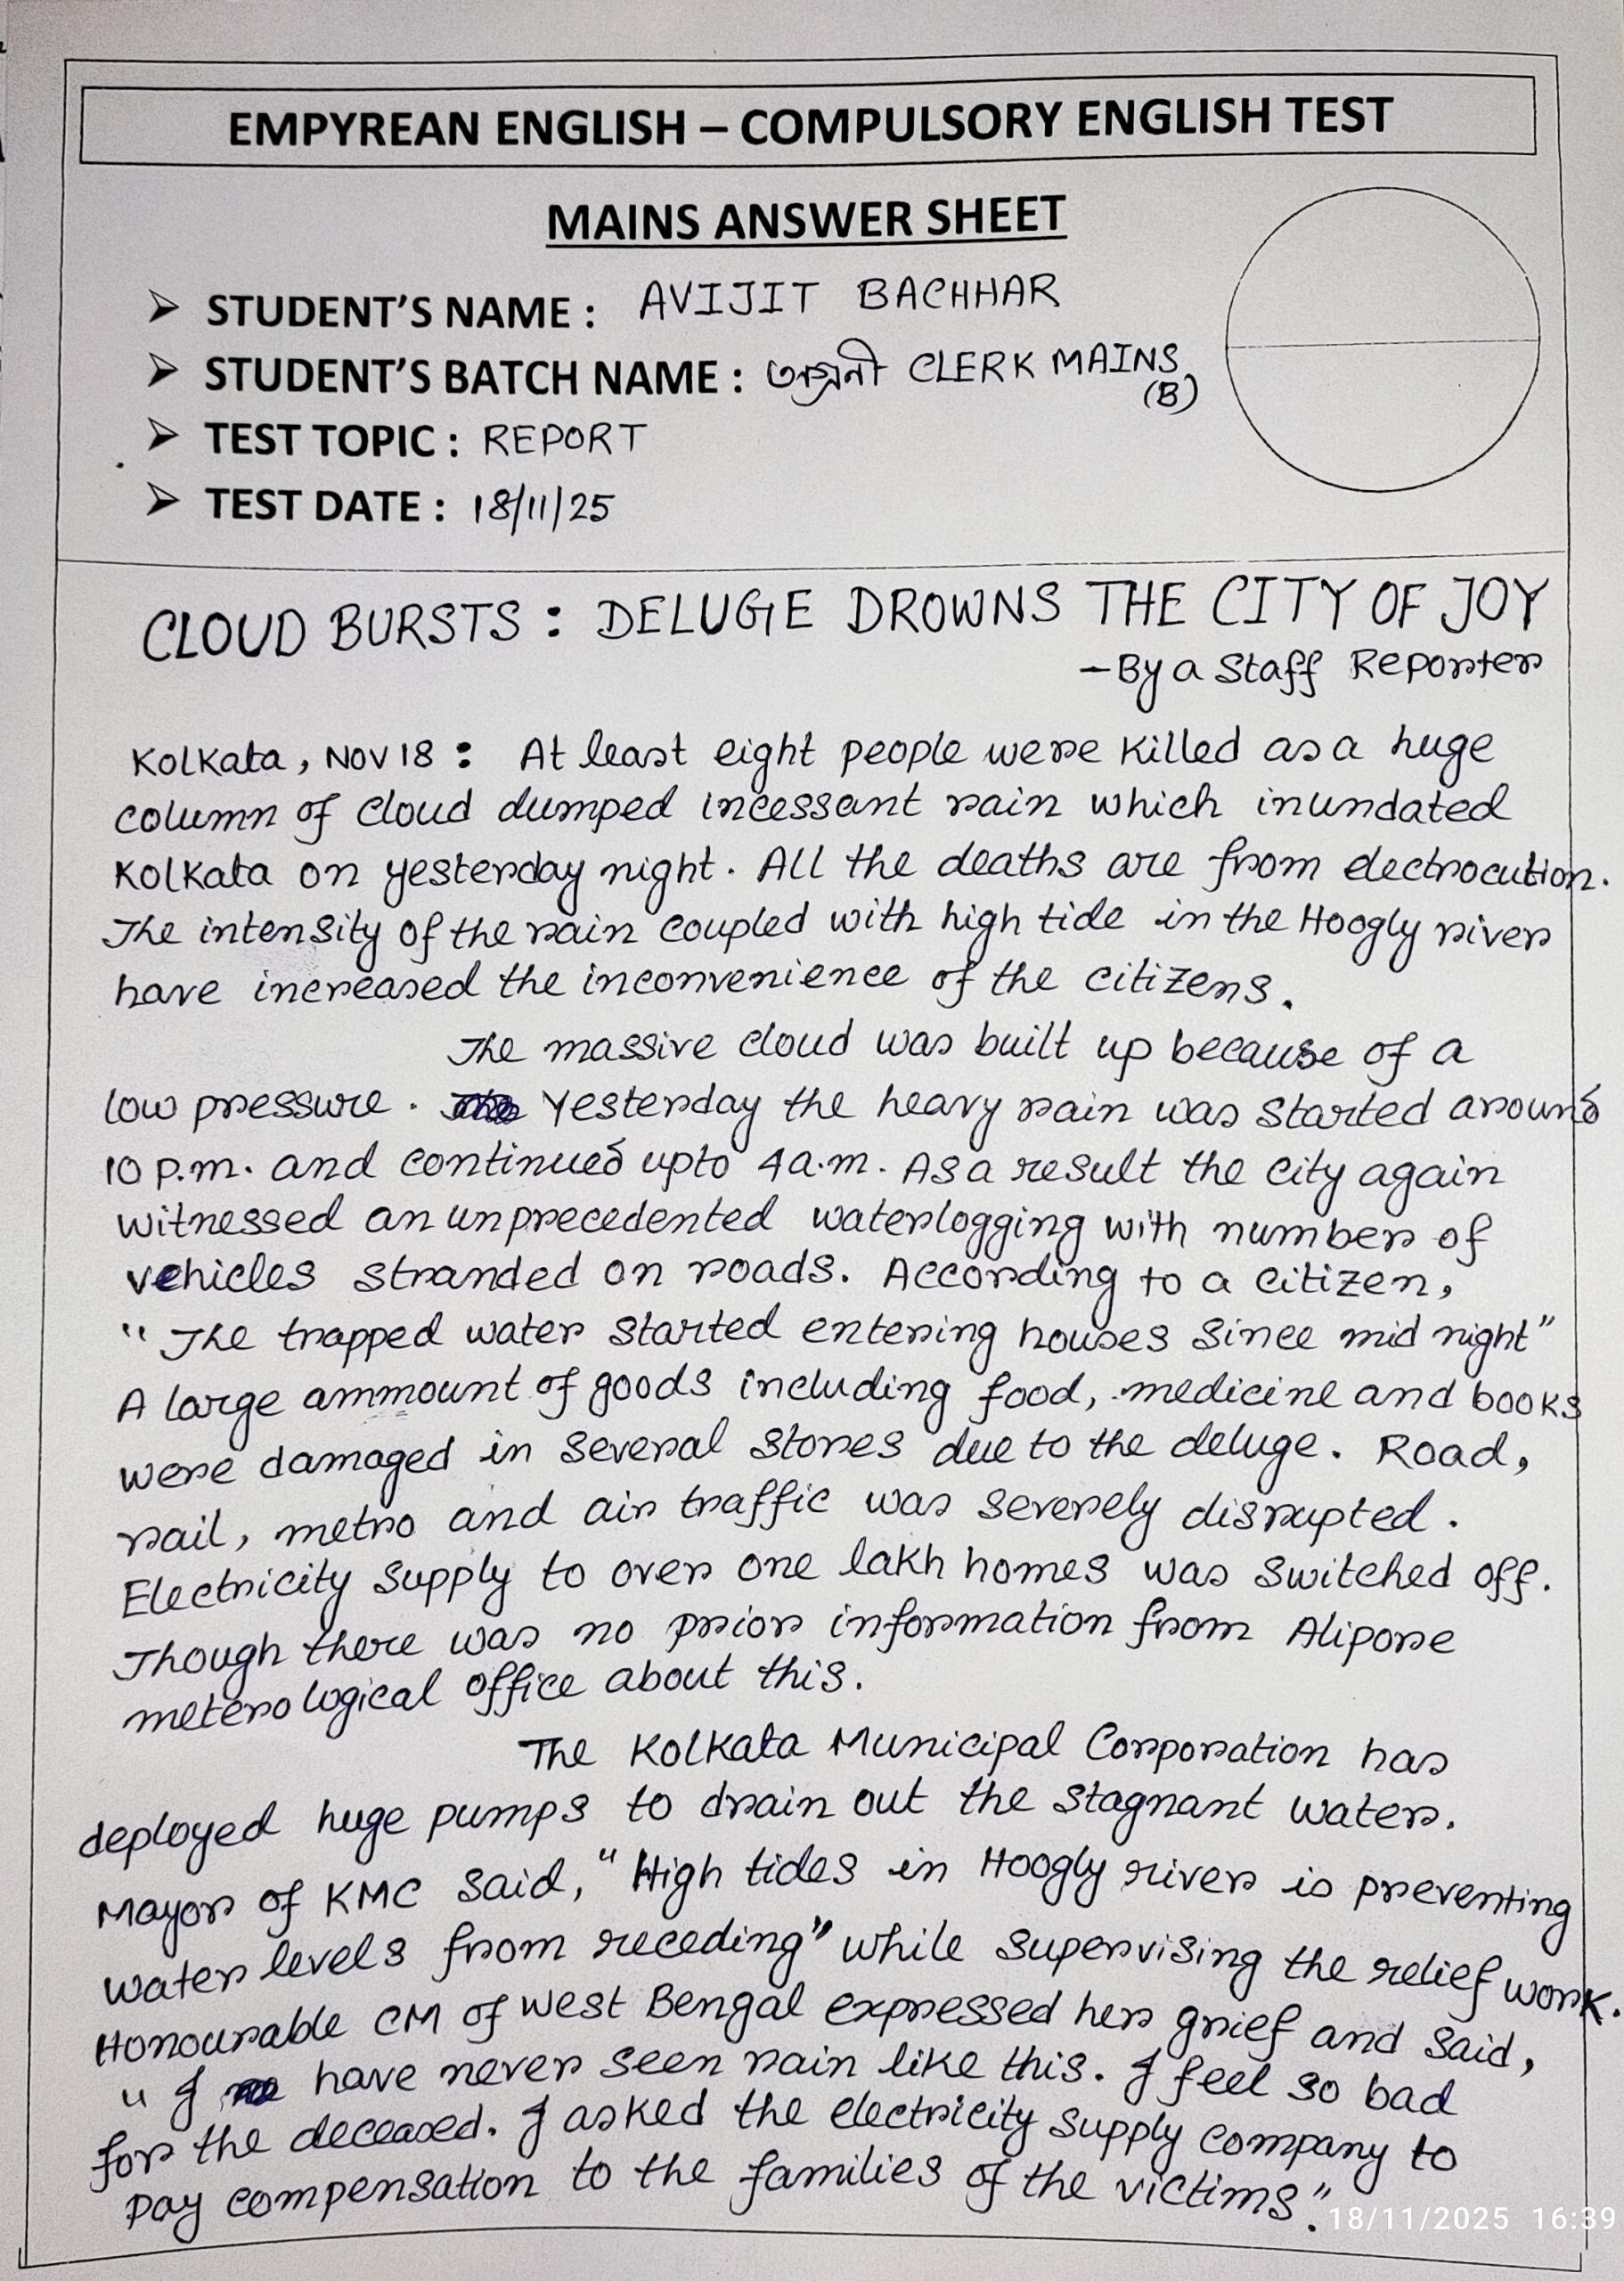 EMPYREAN ENGLISH – COMPULSORY ENGLISH TEST
MAINS ANSWER SHEET
➢ STUDENT'S NAME : AVIJIT BACHHAR
➢ STUDENT'S BATCH NAME : CLERK MAINS
(B)
➢ TEST TOPIC : REPORT
➢ TEST DATE : 18/11/25
CLOUD BURSTS : DELUGE DROWNS THE CITY OF JOY
– By a Staff Reporter
Kolkata, Nov 18 : At least eight people were killed as a huge
column of cloud dumped incessant rain which inundated
Kolkata on yesterday night. All the deaths are from electrocution.
The intensity of the rain coupled with high tide in the Hoogly river
have increased the inconvenience of the citizens.
The massive cloud was built up because of a
low pressure. Yesterday the heavy rain was started around
10 p.m. and continued upto 4 a.m. As a result the city again
witnessed an unprecedented waterlogging with number of
vehicles stranded on roads. According to a citizen,
" The trapped water started entering houses since mid night"
A large ammount of goods including food, medicine and books
were damaged in several stores due to the deluge. Road,
rail, metro and air traffic was severely disrupted.
Electricity supply to over one lakh homes was switched off.
Though there was no prior information from Alipore
meterological office about this.
The Kolkata Municipal Corporation has
deployed huge pumps to drain out the stagnant water.
Mayor of KMC said, "High tides in Hoogly river is preventing
water levels from receding" while supervising the relief work.
Honourable CM of West Bengal expressed her grief and said,
" I have never seen rain like this. I feel so bad
for the deceased. I asked the electricity supply company to
pay compensation to the families of the victims".
18/11/2025 16:39